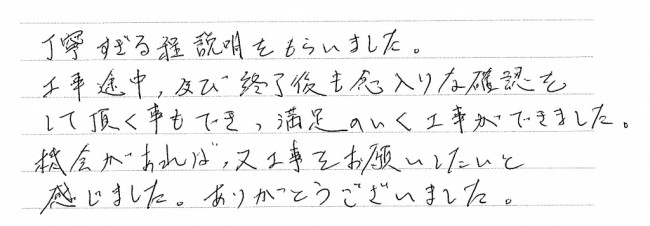 丁寧すぎる程説明をもらいました。
工事途中,及び終了後も念入りな確認を
して頂く事もでき、満足のいく工事ができました。
機会があれば,又工事をお願いしたいと
感じました。ありがとうございました。